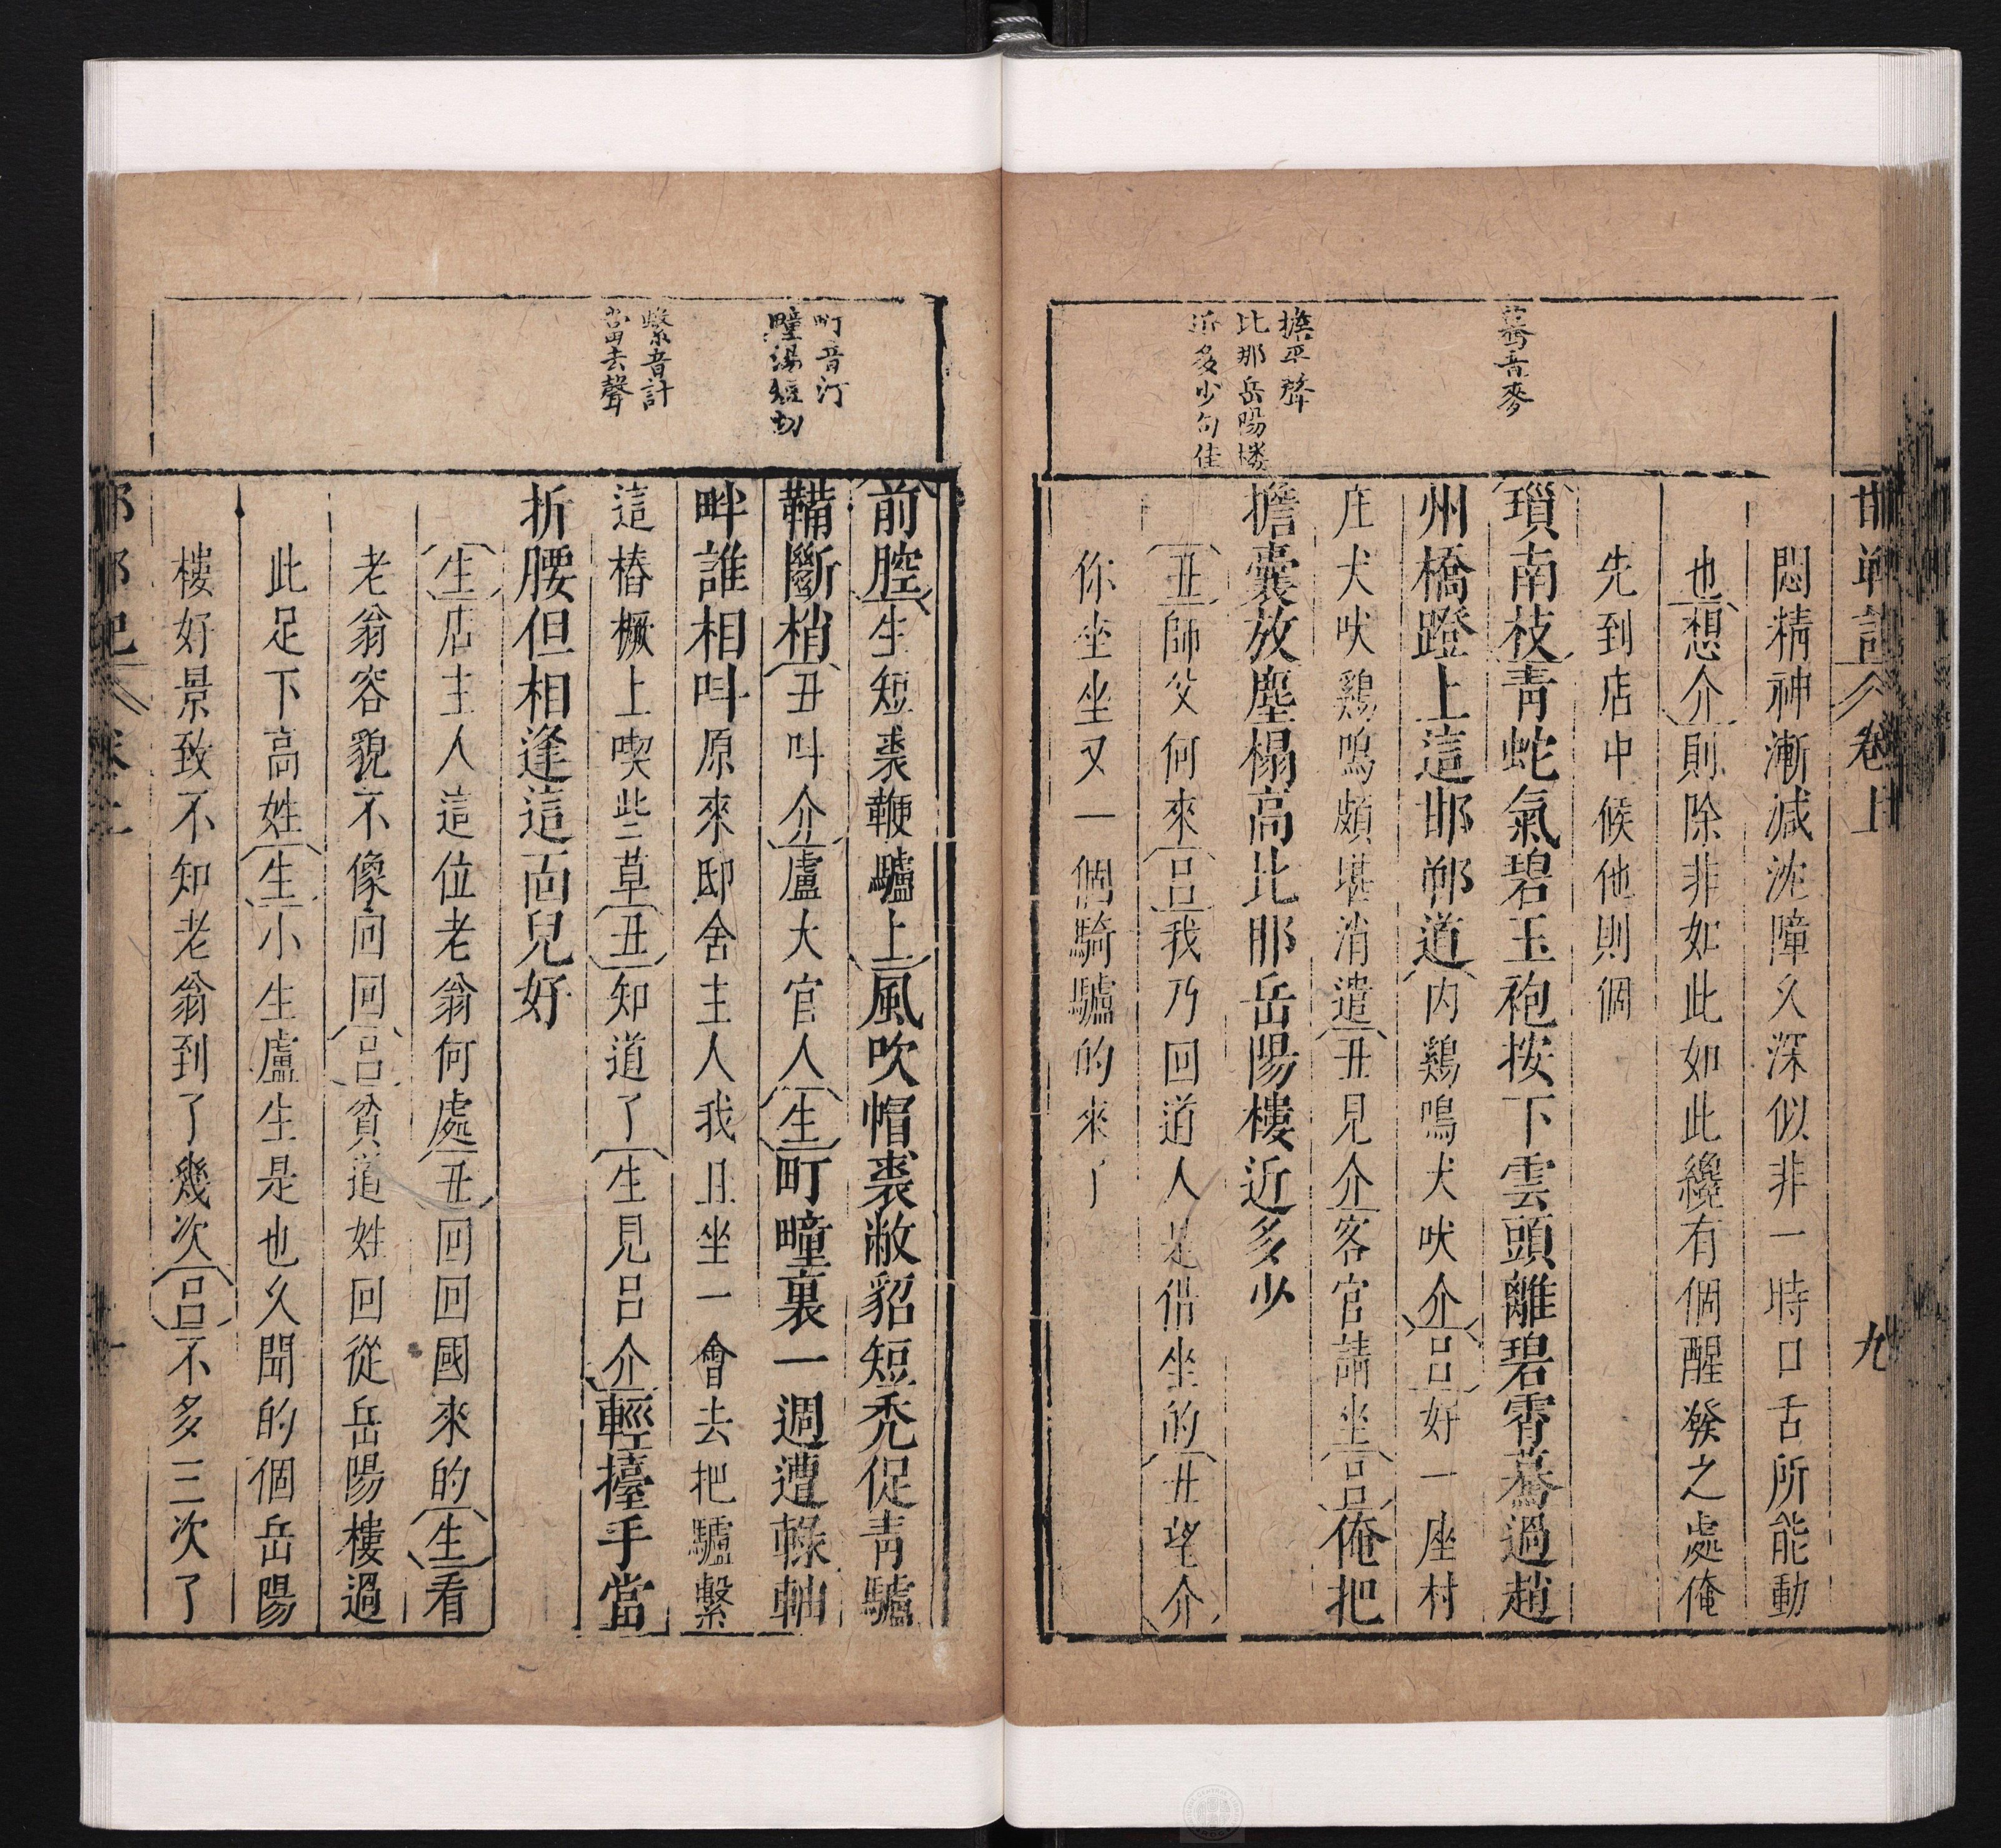 邯鄲記 卷上 九
驀音麥
擔平聲
比那岳陽樓
近多少句佳
悶精神漸減沈障久深似非一時口舌所能動
也想介則除非如此如此纔有個醒發之處俺
先到店中候他則個
瑣南枝青蛇氣碧玉袍按下雲頭離碧霄驀過趙
州橋蹬上這邯鄲道内鷄鳴犬吠介呂好一座村
庄犬吠鷄鳴頗堪消遣丑見介客官請坐呂俺把
擔囊放塵榻高比那岳陽樓近多少
丑師父何來呂我乃回道人是借坐的丑望介
你坐坐又一個騎驢的來了
町音汀
畽湯短切
繫音計
當去聲
前腔生短裘鞭驢上風吹帽裘敝貂短禿促青驢
鞴斷梢丑叫介盧大官人生町畽裏一週遭轅軸
畔誰相叫原來邸舍主人我且坐一會去把驢繫
這樁橛上喫些草丑知道了生見呂介輕擡手當
折腰但相逢這面兒好
生店主人這位老翁何處丑回回國來的生看
老翁容貌不像回回呂貧道姓回從岳陽樓過
此足下高姓生小生盧生是也久聞的個岳陽
樓好景致不知老翁到了幾次呂不多三次了